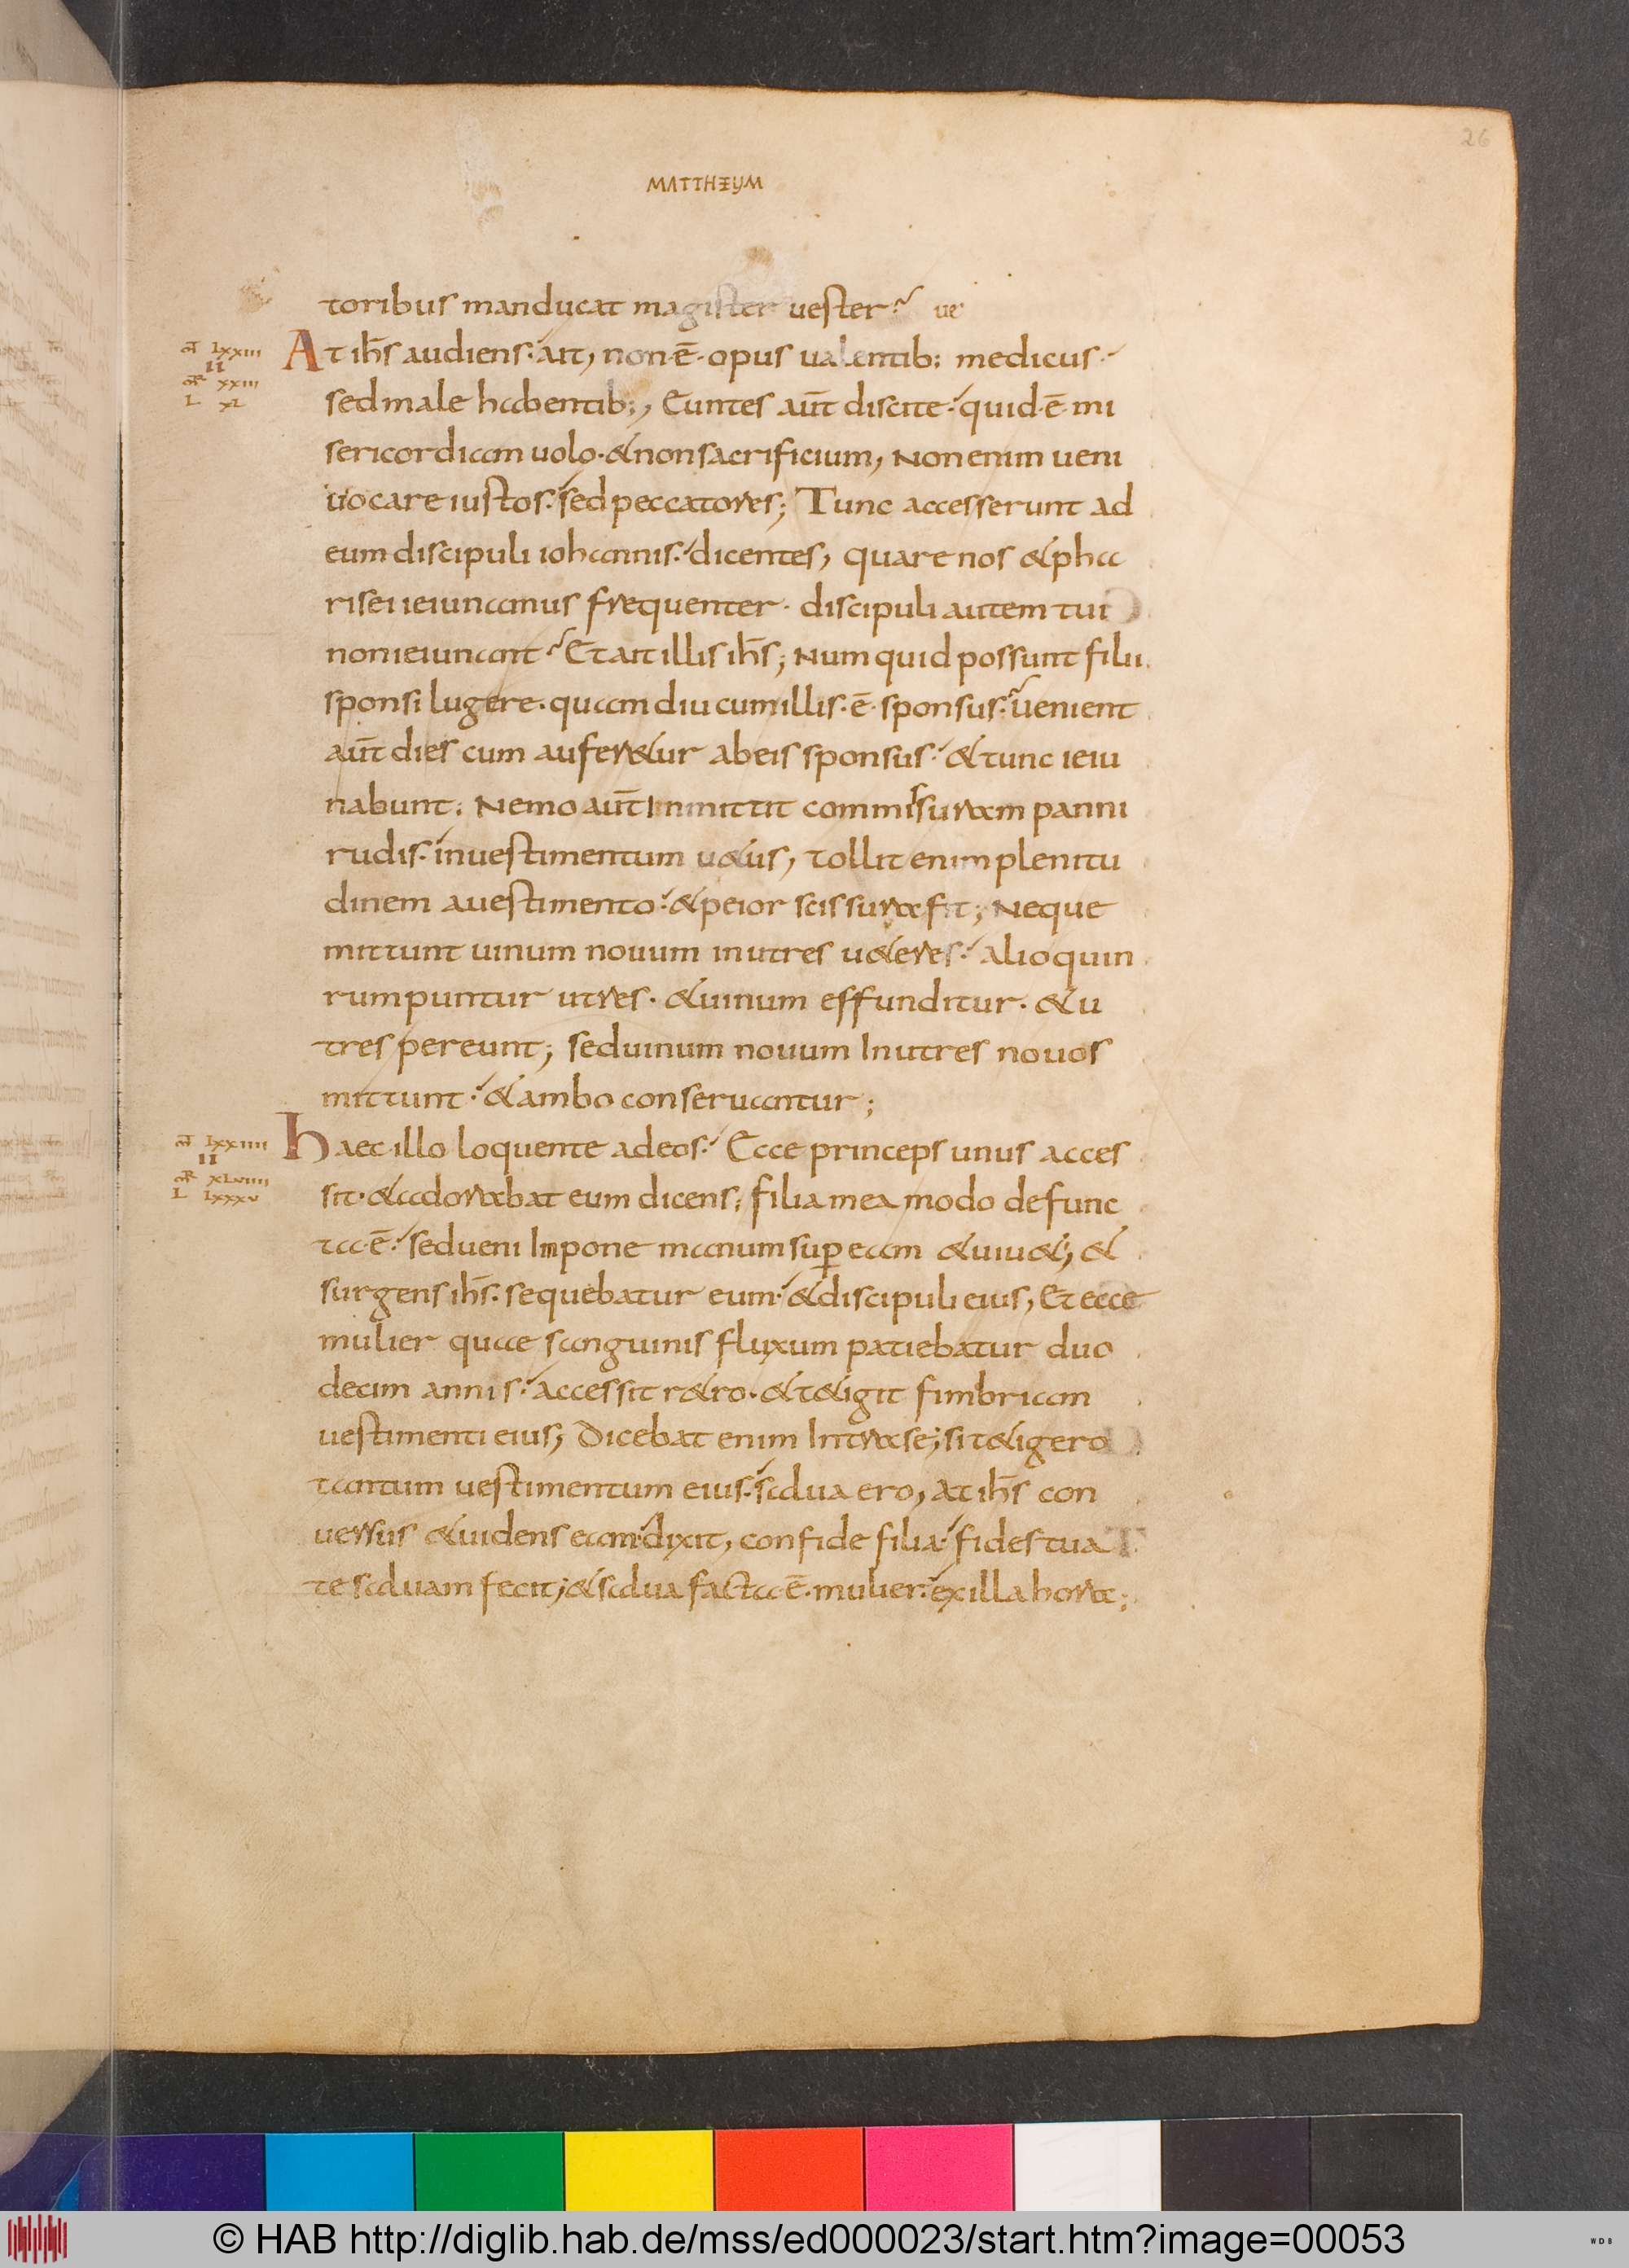 26
MATTHEUM
toribus manducat magister uester? ue
At ih̅s audiens. ait, non·ē·opus ualentib; medicus·
mt̅ lxxiii
ii
mr̅ xxiii
L xl
sed male habentib;, Euntes aut̅ discite. quid·ē·mi
sericordiam uolo·& non sacrificium, Non enim ueni
uocare iustos. sed peccatores; Tunc accesserunt ad
eum discipuli iohannis. dicentes, quare nos & pha
risei ieiunamus frequenter· discipuli autem tui
non ieiunant? Et ait illis ih̅s; Numquid possunt filii
sponsi lugere. quamdiu cum illis·ē·sponsus? uenient
aut̅ dies cum aufer&ur ab eis sponsus. & tunc ieiu
nabunt. Nemo aut̅ Inmittit commissuram panni
rudis. in uestimentum u&us, tollit enim plenitu
dinem a uestimento. & peior scissura fit; Neque
mittunt uinum nouum in utres u&eres. alioquin
rumpuntur utres· & uinum effunditur· & u
tres pereunt; sed uinum nouum In utres nouos
mittunt. & ambo conseruantur;
Haec illo loquente ad eos. Ecce princeps unus acces
mt̅ lxxiiii
ii
mr̅ xLviiii
L lxxxv
sit·& adorabat eum dicens; filia mea modo defunc
ta·ē. sed ueni Impone manum sup̱ eam & uiu&; &
surgens ih̅s. sequebatur eum. & discipuli eius, Et ecce
mulier quae sanguinis fluxum patiebatur duo
decim annis. accessit r&ro·& t&igit fimbriam
uestimenti eius; Dicebat enim Intra se; si t&igero
tantum uestimentum eius. salua ero, at ih̅s con
uersus & uidens eam. dixit, confide filia. fides tua
te saluam fecit; & salua facta·ē·mulier. ex illa hora;
© HAB http://diglib.hab.de/mss/ed000023/start.htm?image=00053